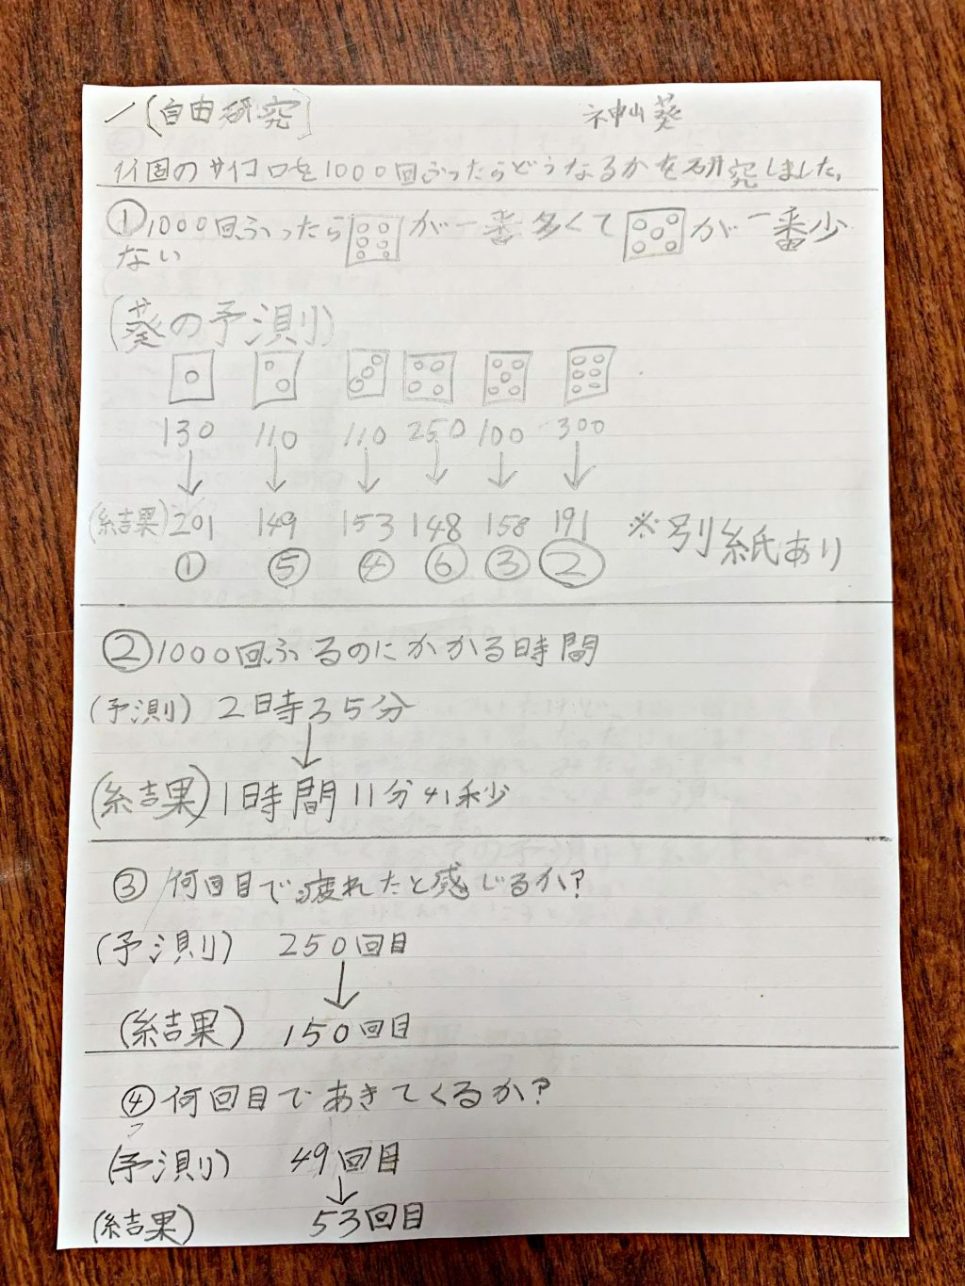 [自由研究]
神山葵
1個のサイコロを1000回ふったらどうなるかを研究しました。
①1000回ふったら が一番多くて が一番少
ない
(葵の予測)
130 110 110 250 100 300
(結果) 201 149 153 148 158 191 ※別紙あり
① ⑤ ④ ⑥ ③ ②
②1000回ふるのにかかる時間
(予測) 2時35分
(結果) 1時間11分41秒
③ 何回目で疲れたと感じるか?
(予測) 250回目
(結果) 150回目
④何回目であきてくるか?
(予測) 49回目
(結果) 53回目